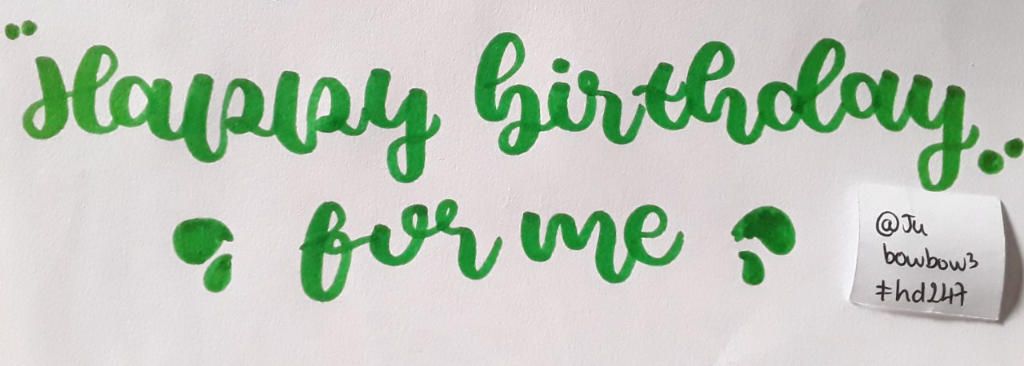 "Happy birthday"
for me
@Ju
bowbow3
#hd247